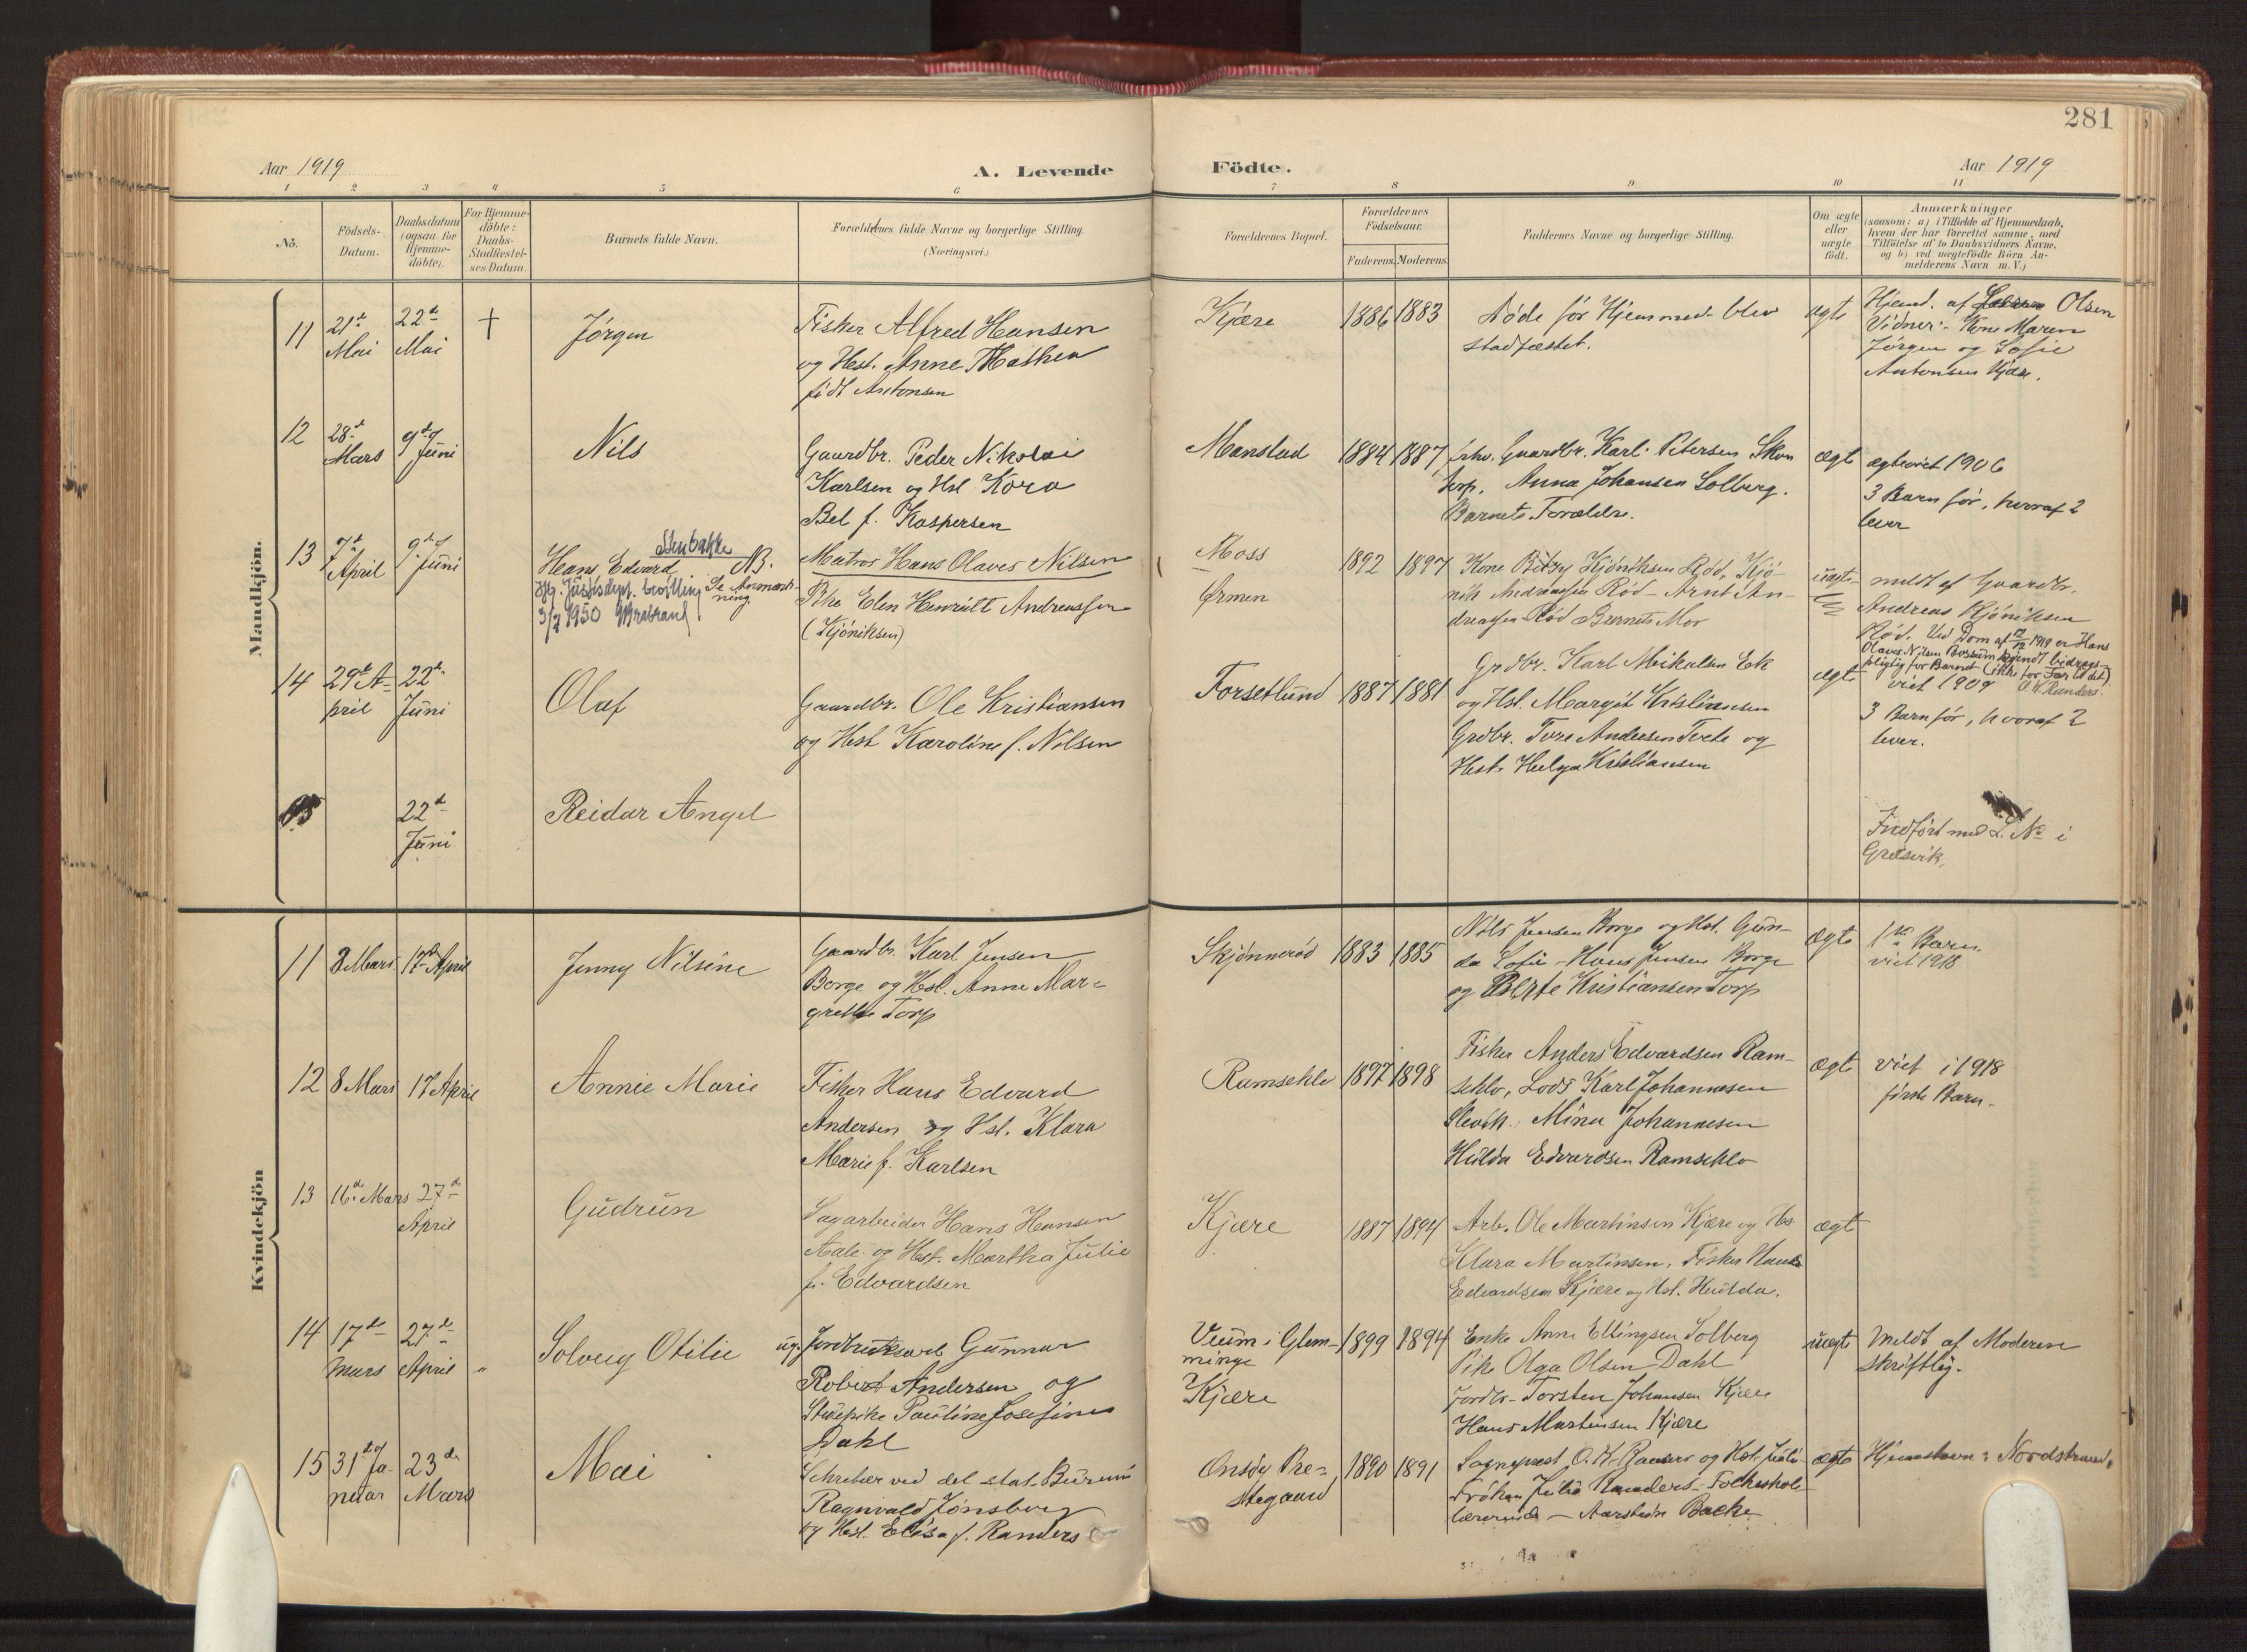 281
Aar 1919
A. Levende
Födte.
Aar 1919
1 2 3 4 5 6 7 8 9 10 11
No.
Födsels-
Datum.
Daabsdatum
(ogsaa for
Hjemme-
döbte).
For Hjemme-
döbte:
Daabs-
Stadfæstel-
ses Datum.
Barnets fulde Navn.
Forældrenes fulde Navne og borgerlige Stilling.
(Næringsvei.)
Forældrenes Bopæl.
Forældrenes
Födselsaar.
Faderens. Moderens.
Faddernes Navne og borgerlige Stilling.
Om ægte
eller
uægte
födt.
Anmærkninger
(saasom: a) i Tilfælde af Hjemmedaab,
hvem der har forrettet samme, med
Tilföielse af to Daabsvidners Navne.
og b) ved uægtefödte Börn An-
melderens Navn m. V.)
Mandkjön.
11
21de
Mai
22de
Mai
†
Jørgen
Fisker Alfred Hansen
og Hest. Anne Mathea
født Antonsen
Kjære
1886 1883
Døde før Hjemmed. blev
stadfæstet.
ægte
Hjemd. af Olsen
Vidner: Kone Maren
Jørgen og Sofie
Antonsen Kjære.
12
28de
Mars
9de
Juni
Nils
Gaardbr. Peder Nikolai
Karlsen og Hst Kora
Bel f. Kaspersen
Manstad
1884 1887
Gaardbr. Karl Petersen Skon
torp. Anna Johansen Solberg.
Barnets Forældre.
ægte
ægteviet 1906
3 Barn før, hvoraf 2
lever
13
7de
April
9de
Juni
Stenbakke
Hans Edvard NB.
iflg. Justisdept. bevilling Se Anmærk-
ning.
3/7 1950
Matros Hans Olaves Nilsen
Pike Elen Henriette Andreassen
(Kjøniksen)
Moss
Ørmen
1892 1897
Kone Kjøniksen Rød, Kjø-
nik Andreassen Rød - Arnt An-
dreassen Rød Barnets Mor
uægte
meldt af Gaardbr.
Andreas Kjøniksen
Rød. Ved Dom af 12/12 1919 er Hans
Olaves Nilsen kjendt bidrags-
pligtig for Barnet (ikke for Far til det).
O.K. Randers.
14
29de A-
pril
22de
Juni
Olaf
Gaardbr. Ole Kristiansen
og Hest Karoline f. Nilsen
Forsetlund
1887 1881
Grdbr. Karl Mikalsen Ek
og Hst. Margit Kristiansen
Grdbr. Tore Andersen Tvete og
Hest. Helga Kristiansen
ægte
viet 1909
3 Barn før, hvoraf 2
lever.
22de
Juni
Reidar Angel
Indført med L. No i
Græsvik.
Kvindekjön
11
8 Mars
17de April
Jenny Nilsine
Gaardbr. Karl Jensen
Borge og Hst. Anne Mar-
grethe Torp
Skjønnerød
1883 1885
Nils Jensen Borge og Hst. Gun-
da Sofie - Hans Jensen Borge
og Berte Kristiansen Torp
ægte
1ste Barn
viet 1918
12
8 Mars
17 April
Annie Marie
Fisker Hans Edvard
Andersen og Hst. Klara
Marie f. Karlsen
Ramseklo
1897 1898
Fisker Anders Edvardsen Ram-
seklo, Lods Karl Johannesen
Slevik. Mina Johannesen
Hilda Edvardsen Ramseklo
ægte
viet i 1918
første Barn.
13
16de Mars
27de
April
Gudrun
Sagarbeider Hans Hansen
Aale og Hst. Martha Julie
f. Edvardsen
Kjære
1887 1894
Arb. Ole Martinsen Kjære og Hs.
Klara Martinsen, Fisker Hans
Edvardsen Kjære og Hst. Hulda.
ægte
14
17de
Mars
27de
April
"
Solveig Otilie
ug. Jordbruksarb Gunnar
Robert Andersen og
Stuepike Pauline Josefine
Dahl
Veum i Glem-
minge
Kjære
1899 1894
Enke Anne Ellingsen Solberg
Pike Olga Olsen Dahl
Jordbr. Torsten Johansen Kjære
Hans Martinsen Kjære
uægte
Meldt af Moderen
skriftlig.
15
31te Ja-
nuar
23de
Mars
Mai
Sekretær ved det stat. Bureau
Ragnvald Jønsberg
og Hst. Elisa f. Randers
Onsøy Pre-
stegaard
1890 1891
Sogneprest O. K. Randers og Hst. Julie
Frøken Julie Randers - Folkeskole-
lærerinde - Aarstein Backe
ægte
Hjemstavn: Nordstrand.